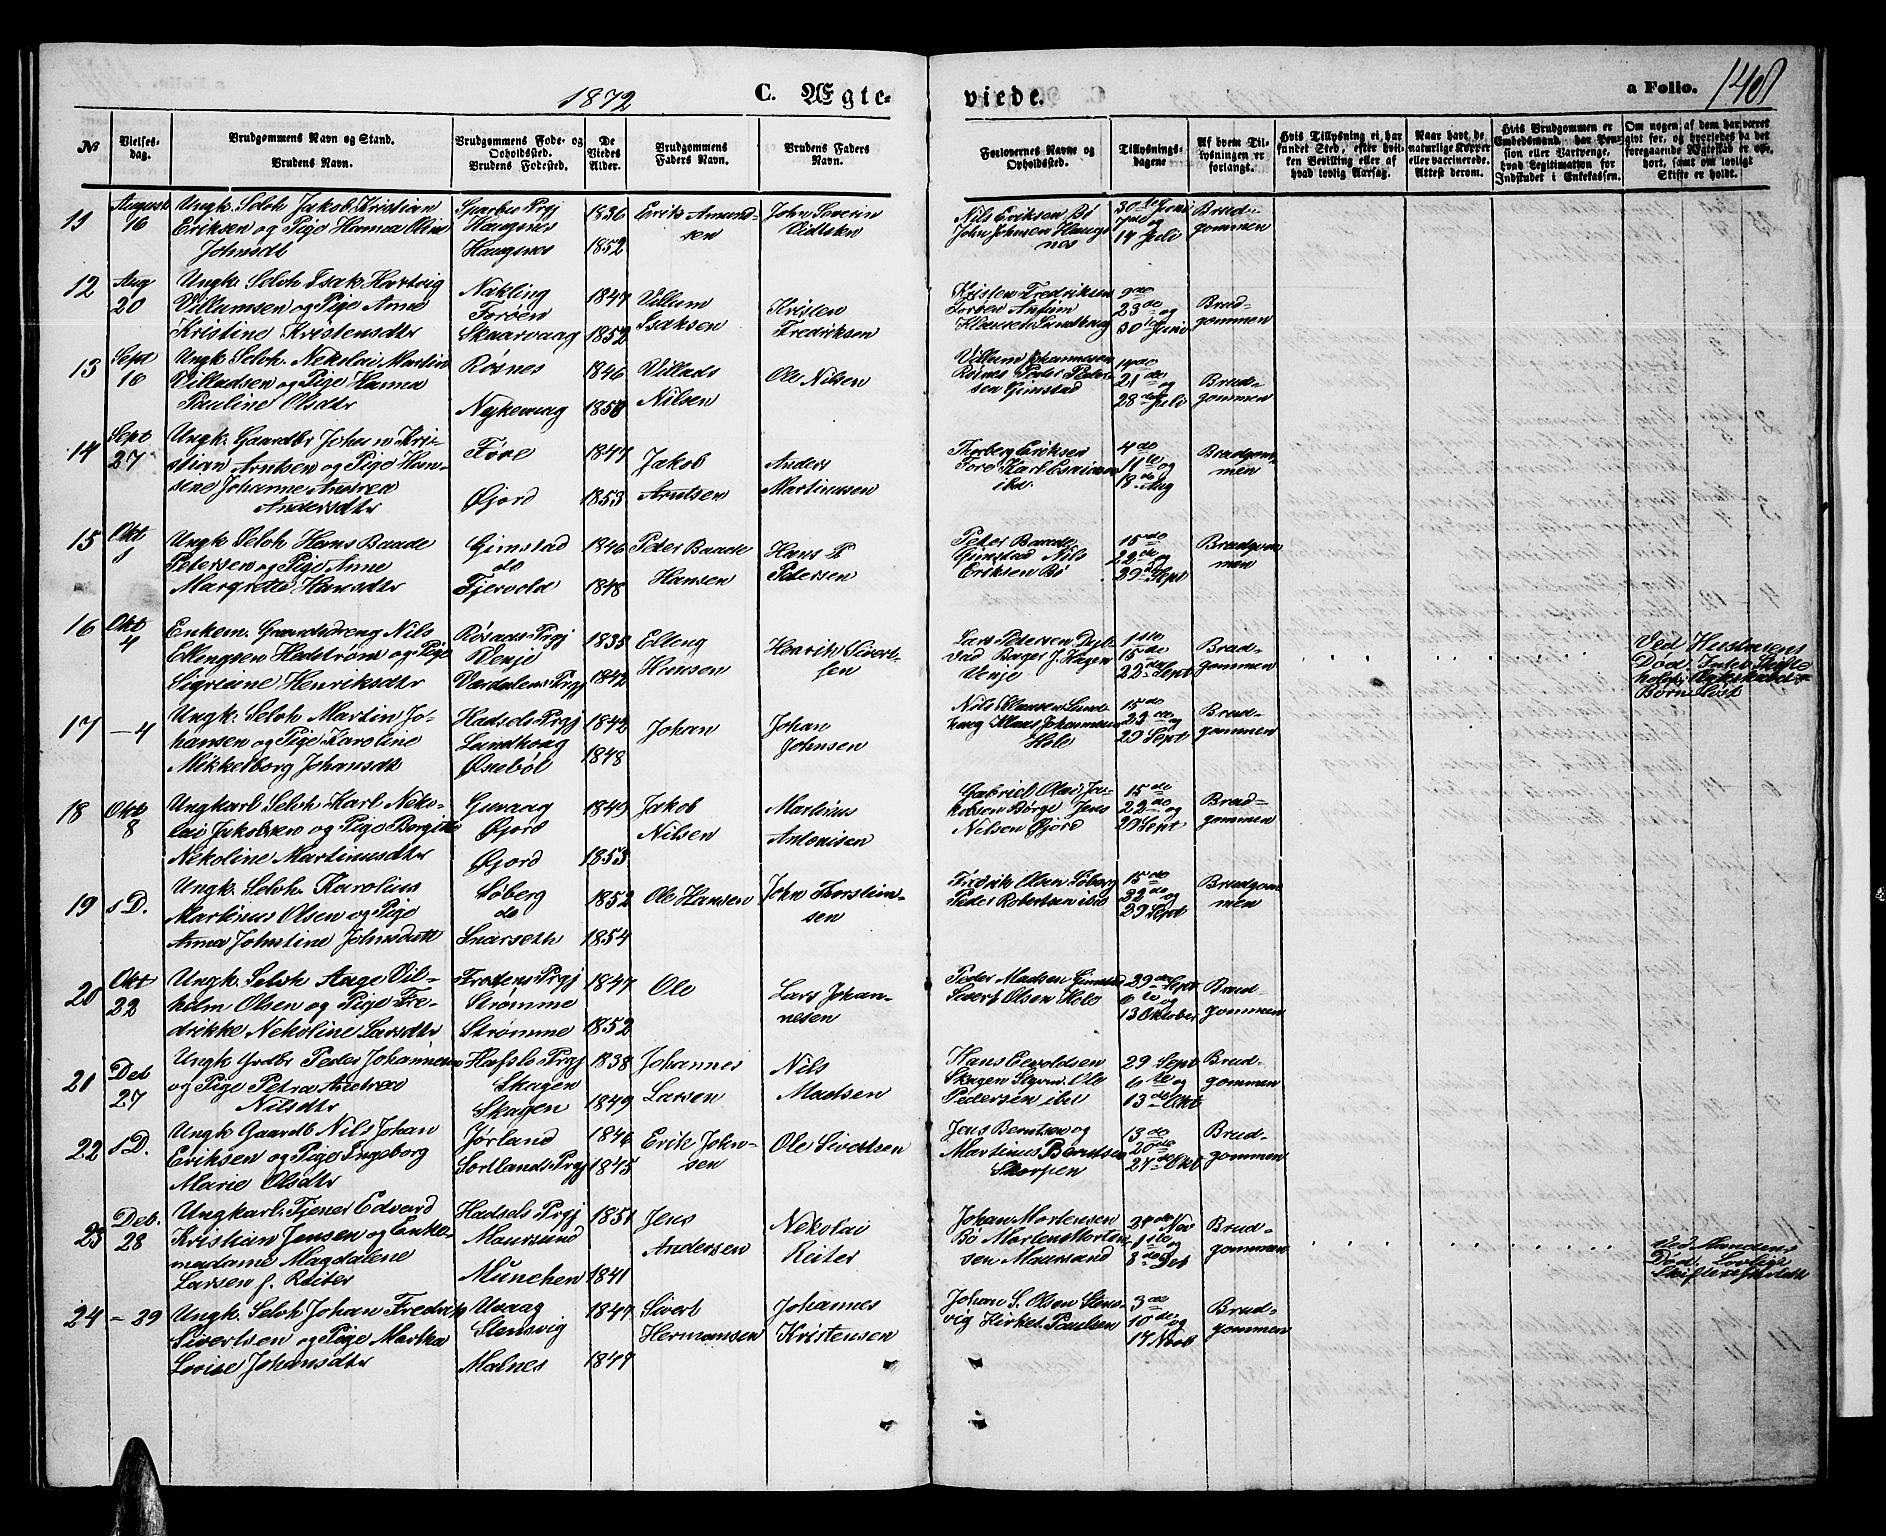 1872
C. Ægte-
viede.
a Folio. 140
№
Vielses-
dag.
Brudgommens Navn og Stand.
Brudens Navn.
Brudgommens Føde- og
Opholdssted.
Brudens Fødested.
De
Viedes
Alder.
Brudgommens
Faders Navn.
Brudens Faders
Navn.
Forlovernes Navne og
Opholdssted.
Tillysnings-
dagene
Af hvem Til-
lysningen er
forlangt.
Hvis Tillysning ei har
fundet Sted, efter hvil-
ken Bevilling eller af
hvad lovlig Aarsag.
Naar havt de
naturlige Kopper
eller vaccinerede.
Attest derom.
Hvis Brudgommen er
Embedsmand, har Pen-
sion eller Vartpenge,
hvad Legitimation for
Indskudet i Enkekassen.
Om nogen af dem har været
gift før, og hvorledes da det
foregaaende Ægteskab er op-
hørt, samt om lovligt
Skifte er holdt.
11 August 16
Ungk. Selvh Jakob Kristian
Eriksen og Pige Hanna
Johnsdt
Sparbu Prgj
Haugsnes
Haugsnes
1836
1852
Erik Amund-
sen
John Severin
Nils Eriksen Bø
John Johnsen Haugs
nes
30te Juni
7de og
14 Juli
Brud-
gommen
12 Aug 20
Ungk. Selvh Isak Hartvig
Villumsen og Pige Anna
Kristine Kristensdtr
Nykling
Forøen
Skaarvaag
1847
1852
Villum
Isaksen
Kristen
Fredriksen
Kristen Fredriksen
Forøen Antum
Klausen Sandvaag
23de og
30te Juni
Brud-
gommen
13 Sept 16
Ungk. Selvh. Nekolai Martin
Villadsen og Pige Hanna
Pauline Olsdtr
Røsnes
Nykevaag
1846
1850
Villads
Nilsen
Ole Nilsen
Villum Johannesen
Røsnes Peder Peder-
sen Gimstad
14de
21de og
28de Juli
Brud-
gommen
14 Sept 27
Ungk. Gaardbr Johan Kri-
stian Arntsen og Pige Han-
sine Johanne Andrea
Andersdtr
Føre
Øjord
1847
1853
Jakob
Arntsen
Anders
Martinussen
Thorberg Eriksen
Føre Karl Esaiasen
ibd.
4de
11te og
18de Aug
Brudgom-
men
15 Okt 1
Ungk Selvh Hans Baade
Petersen og Pige Anne
Margrette Hansdtr
Gimstad
do
Fjervold
1846
1848
Peter Baade
Hansen
Hans P
Petersen
Peter Baade
Gimstad Nils
Eriksen Bø
15de
22de og
29de Sept
Brudgom
men
16 Okt 4
Enkem. Gaardsdreng Nils
Ellengsen Hedstrøm og Pige
Sigriane Henriksdtr
Venje
Værdalens Prgj
1835
1842
Elleng
Hansen
Henrik Sivert-
sen
Lars Petersen
vad Berger J. Hagen
Venje
1ste
15de
22de Sept
Brud-
gommen
Ved Hustruens
Død. Intet Skifte
holdt. Ægteskabet
17 — 4
Ungk. Selvh Martin Jo-
hansen og Pige Karoline
Mikkelborg Johansdt
Hadsels Prgj
Sandvaag
1842
1848
Johan
Johan
Johnsen
Nils Klausen Sand-
vaag Klaus Johannessen
Hole
15de
23de og
29 Sept
Brud-
gommen
18 Okt 8
Ungkarl Selvh Karl Neko-
lai Jakobsen og Pige Borgitte
Nekoline Martinusdtr
Guvaag
Øjord
Øjord
1849
1853
Jakob
Nilsen
Martinus
Antonisen
Gabriel Olai Ja-
kobsen Børge Jens
Nilsen Øjord
15de
22de og
29 Sept
Brud-
gommen
19 s D.
Ungk. Selvh. Karolius
Martinus Olsen og Pige
Anna Johnstine Johnsdatt
Søberg
do
Snarseth
1852
1854
Ole Hansen
John Thorstein-
sen
Fredrik Olsen Søberg
Peder Robertsen ibd
15de
22de og
29 Sept
Brudgom
men
20 Okt 22
Ungk. Selvh Aage Vil-
helm Olsen og Pige Fre-
drikke Nekoline Larsdtr
Frostens Prgj
Strømme
Strømme
1847
1852
Ole
Lars Johan-
nesen
Peder Madsen Gimstad
Sivert Olsen Hole
29de Sept
6te og
13 Oktober
Brud-
gommen
21 27
Ungk. Grdbr Peder Johannesen
og Pige Petra Andrea
Nilsdtr
Hafslo Prgj
Skagen
Skagen
1838
1849
Johannes
Larsen
Nils
Madsen
Hans Evoldsen
Skagen Ole
Pedersen ibd
29 Sept
6te og
13de Okt
Brud-
gommen
22 s D.
Ungk Gaardb Nils Johan
Eriksen og Pige Ingeborg
Marie Olsdtr
Jørland
Sortlands Prgj
1846
1845
Erik John-
sen
Ole Sivertsen
Jens Berntsen og
Martinus Berntsen
Skorpen
13de
20de
27de Okt
Brud-
gommen
23 Deb. 28
Ungkarl. Tjener Edvard
Kristian Jensen og Enke-
madame Magdalene
Larsen f. Reiter
Hadsels Prgj
Maursund
München
1851
1841
Jens
Andersen
Nekolai
Reiter
Johan Mortensen
Bø Morten Morten-
sen Maursund
24de Nov
1ste og
8de Deb
Brud-
gommen
Ved Mandens
Død. Lovlige
24 – 29
Ungk. Selvh Johan Fredrik
Sivertsen og Pige Martha
Lovise Johansdtr
Uvaag
Stensvig
Malnes
1847
1847
Sivert
Hermansen
Johannes
Kristensen
Johan S. Olsen Stens-
vig Kirket. Paulsen
3de
10de og
17 Novb
Brud-
gommen